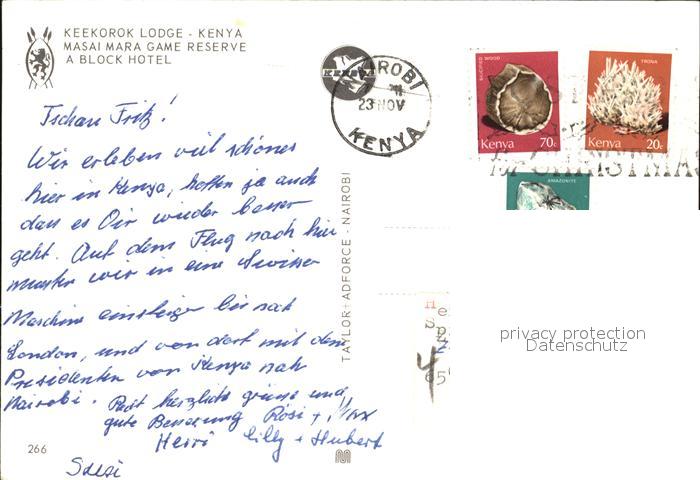 KEEKOROK LODGE - KENYA
MASAI MARA GAME RESERVE
A BLOCK HOTEL
Tschau Fritz!
Wir erleben viel schönes
hier in Kenya, hoffen ja auch
dass es Dir wieder besser
geht. Auf dem Flug nach hier
mussten wir in eine Swisser
Maschine einsteigen bis nach
London, und von dort mit dem
Presidenten von Kenya nah
Nairobi. Recht herzliche grüsse und
gute Besserung Rösi + Max
Herri Lilly + Hubert
Susi
266
TAYLOR+ADFORCE - NAIROBI
KENYA
NAIROBI
23 NOV
KENYA
SILICIFIED WOOD
Kenya 70c
TRONA
Kenya 20c
AMAZONITE
CHRISTMAS
privacy protection
Datenschutz